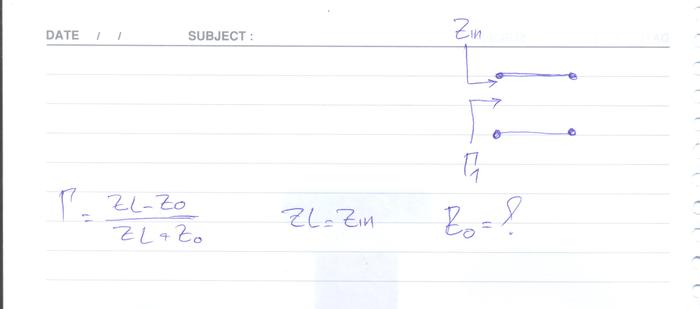 DATE / / SUBJECT :
Zin
Γ1
Γ = ZL - Z0 / ZL + Z0 ZL = Zin Z0 = ?